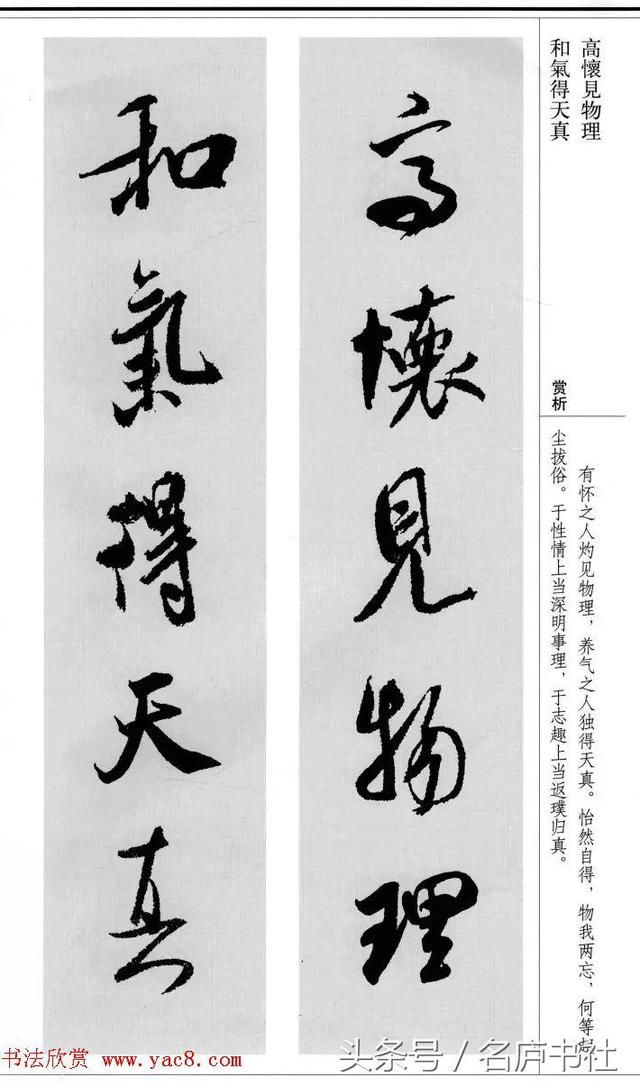 高懷見物理
和氣得天真
高懷見物理
和氣得天真
赏析
有怀之人灼见物理，养气之人独得天真。怡然自得，物我两忘，何等超
尘拔俗。于性情上当深明事理，于志趣上当返璞归真。
书法欣赏 www.yac8.com
头条号/名庐书社